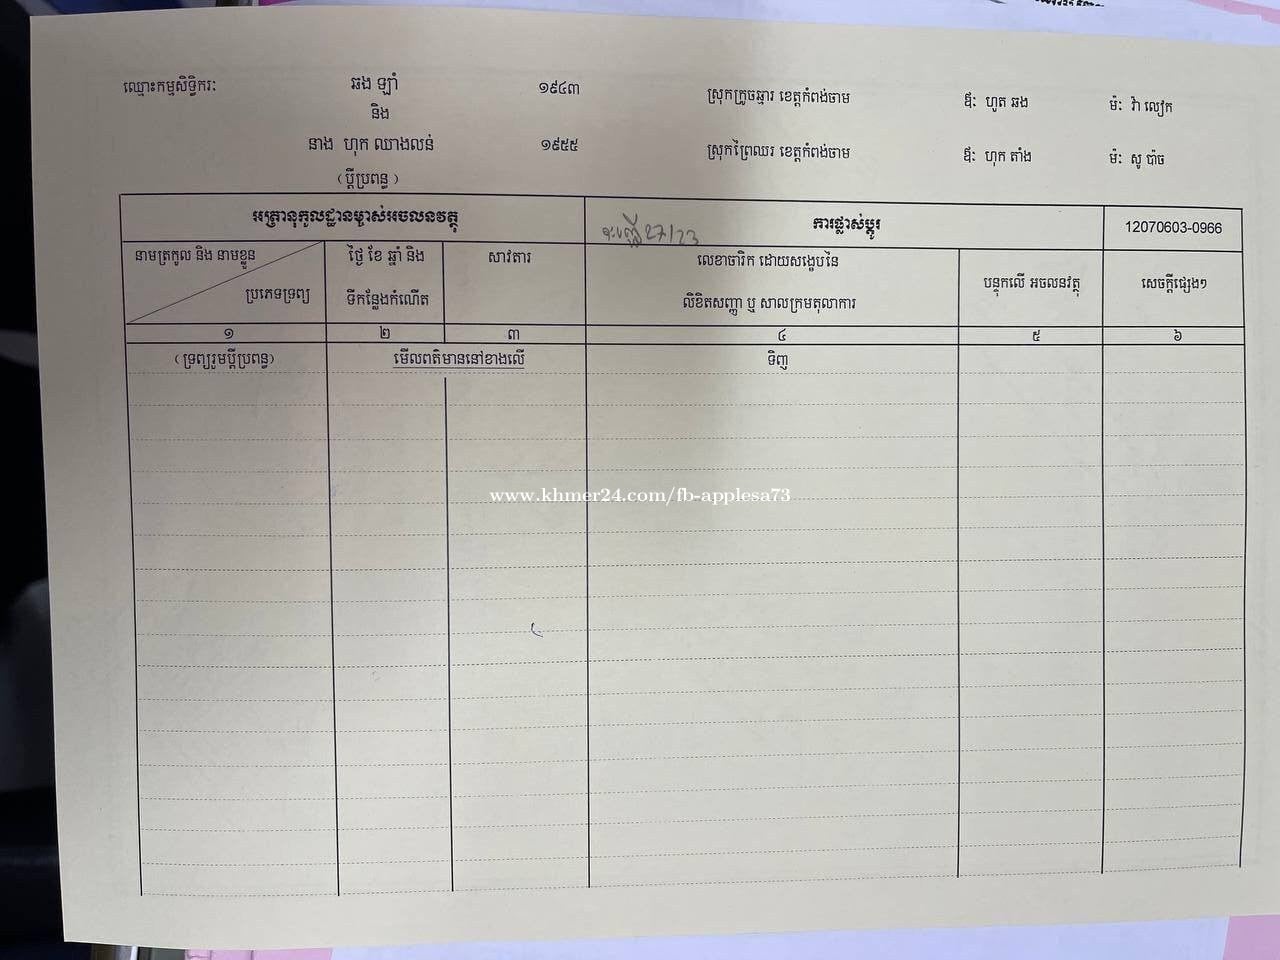 ឈ្មោះកម្មសិទ្ធិករៈ ឆង ឡាំ ១៩៤៣ ស្រុកក្រូចឆ្មារ ខេត្តកំពង់ចាម ឪៈ ហួត ឆង ម៉ៈ វ៉ា លៀក
និង
នាង ហុក ឈាងលន់ ១៩៥៥ ស្រុកព្រៃឈរ ខេត្តកំពង់ចាម ឪៈ ហុក តាំង ម៉ៈ សូ ប៉ាច
(ប្តីប្រពន្ធ)
អត្រានុកូលដ្ឋានម្ចាស់អចលនវត្ថុ ការផ្លាស់ប្តូរ 12070603-0966
27/23
នាមត្រកូល និង នាមខ្លួន ថ្ងៃ ខែ ឆ្នាំ និង សាវតារ លេខាចារិក ដោយសង្ខេបនៃ
បន្ទុកលើ អចលនវត្ថុ សេចក្តីផ្សេងៗ
ប្រភេទទ្រព្យ ទីកន្លែងកំណើត លិខិតសញ្ញា ឬ សាលក្រមតុលាការ
១ ២ ៣ ៤ ៥ ៦
(ទ្រព្យរួមប្តីប្រពន្ធ) មើលពត៌មាននៅខាងលើ ទិញ
www.khmer24.com/fb-applesa73